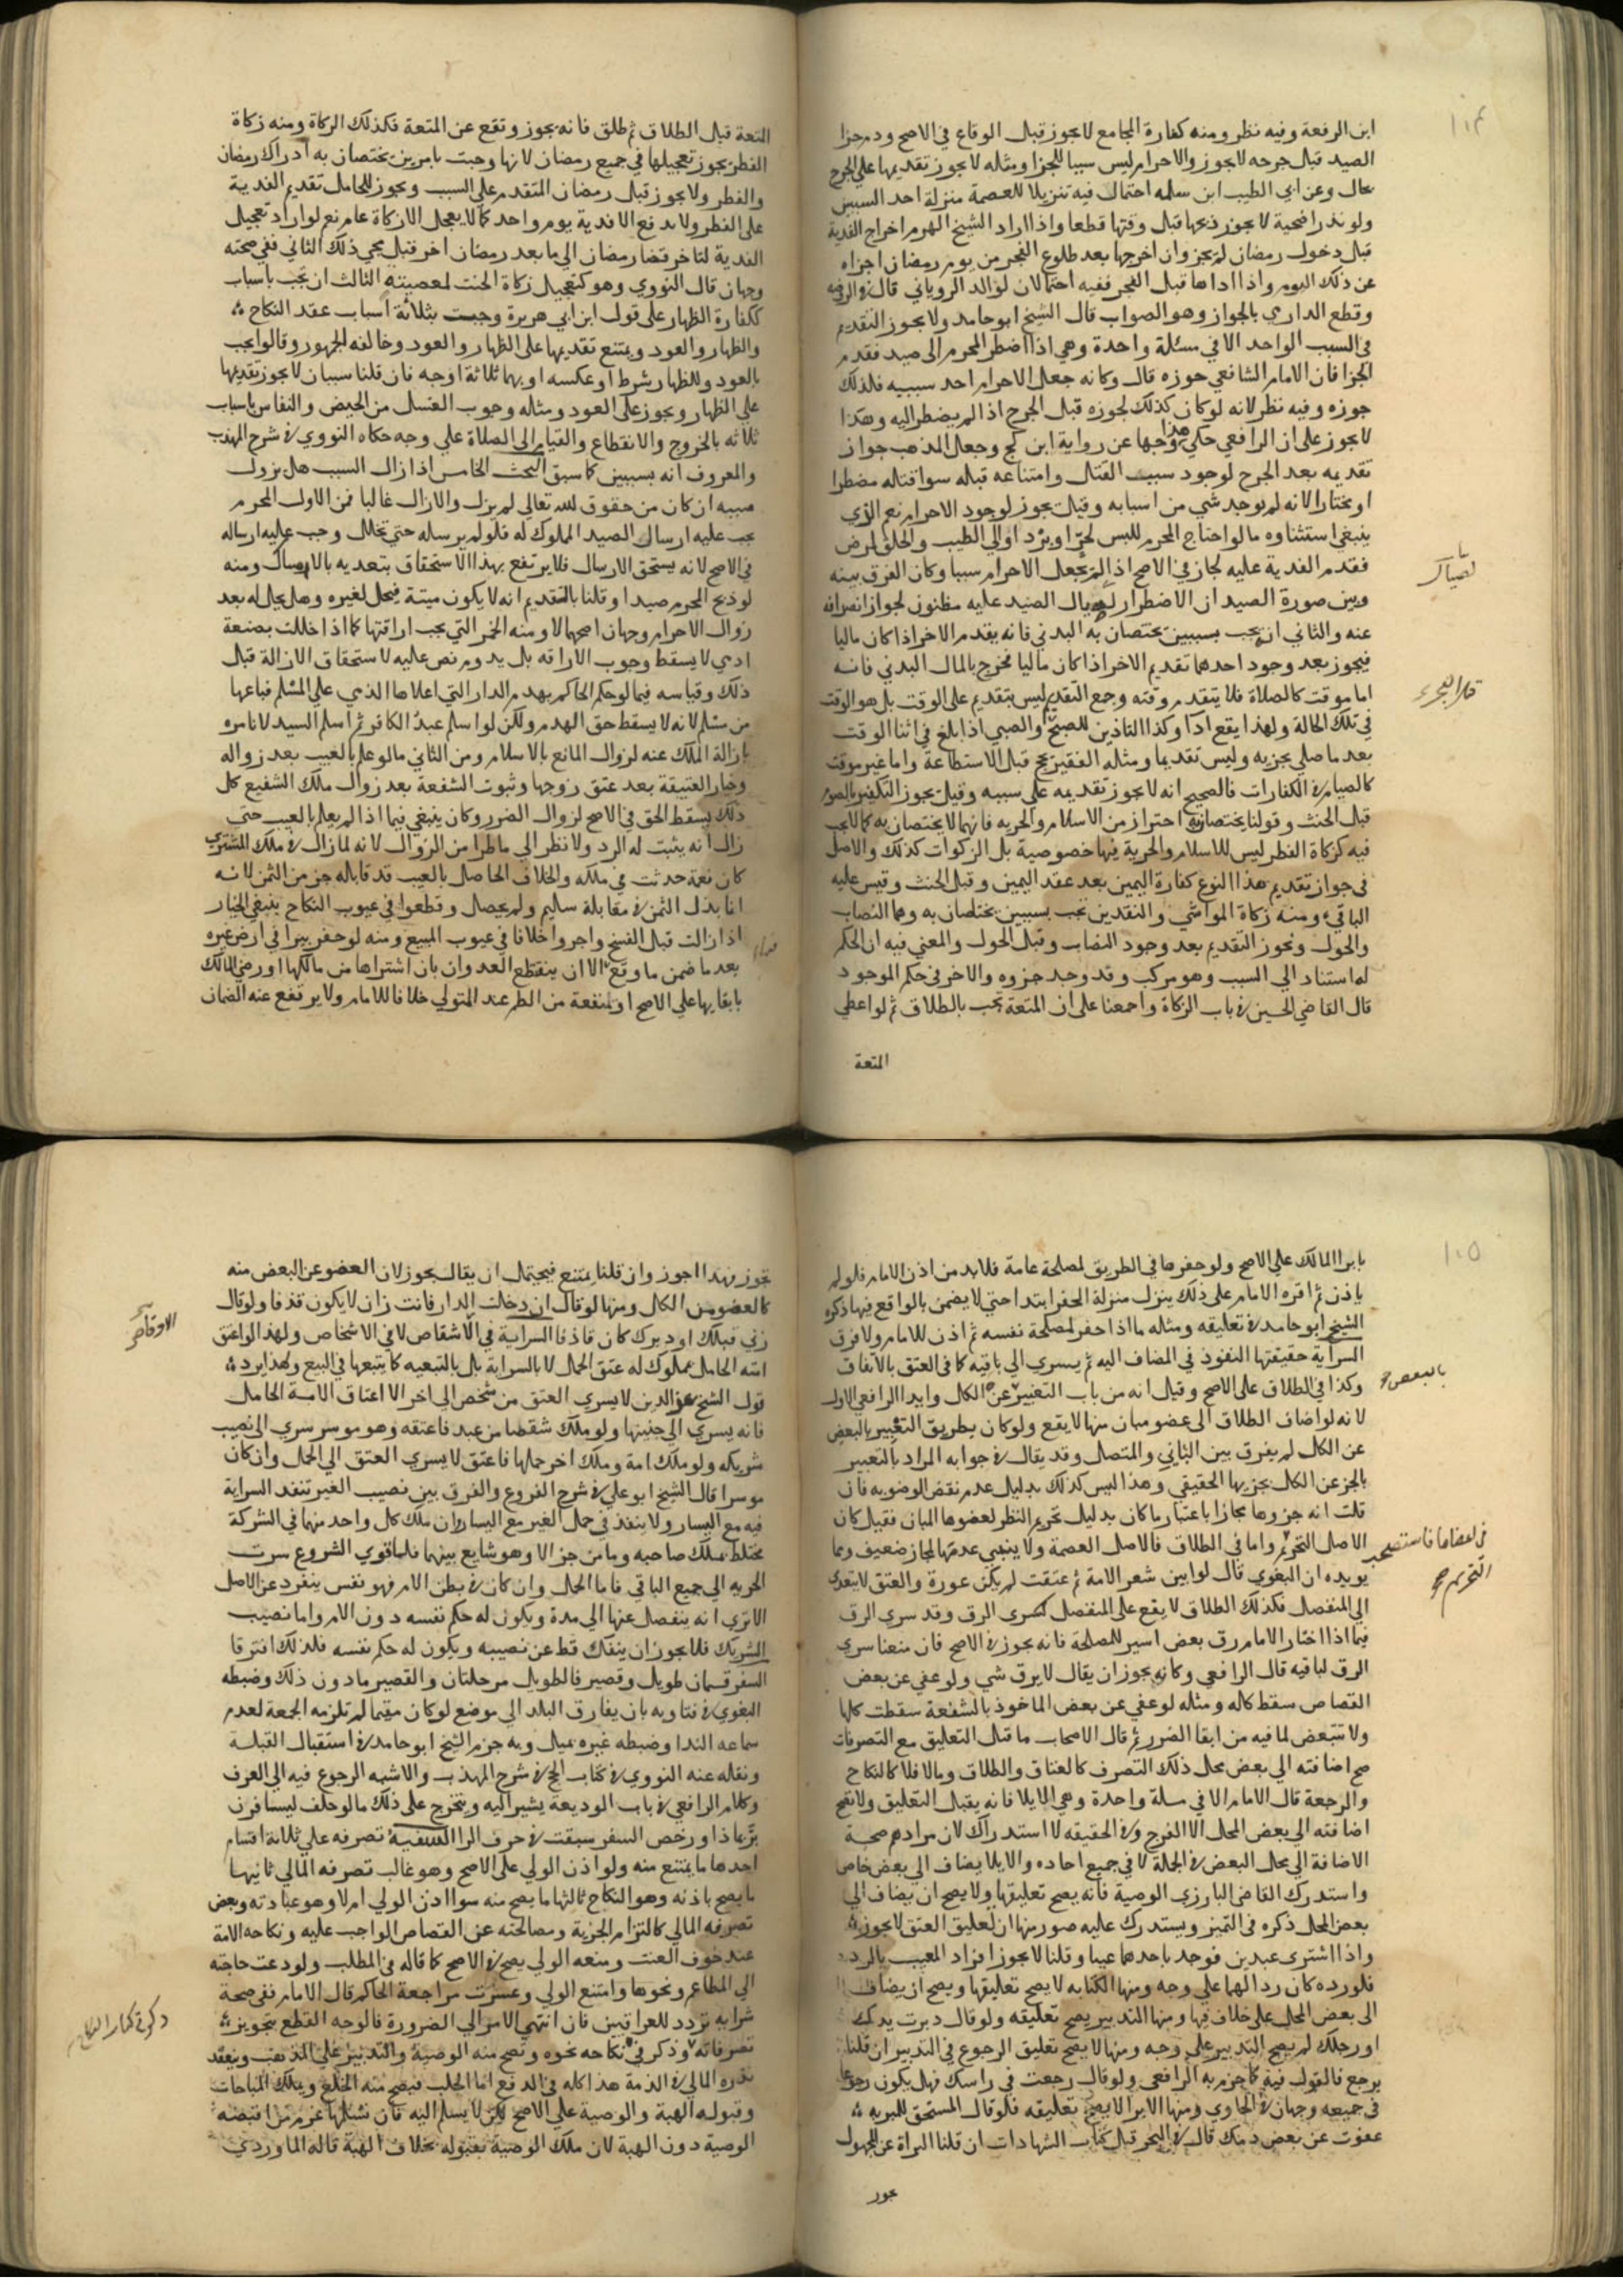 ١٠٤
ابن الرفعة وفيه نظر ومنه كفارة المجامع لا يجوز قبل الوقاع في الاصح ودم جزا
الصيد قبل جرحه لا يجوز والاحرام ليس سببا للجزا ومثله لا يجوز تقديمها على الجرح
بحال وعن ابي الطيب ابن سلمه احتمال فيه تنزيلا للعصمة منزلة احد السببين
ولو نذر اضحية لا يجوز ذبحها قبل وقتها قطعا واذا اراد الشيخ الهرم اخراج الفدية
قبل دخول رمضان لم يجز وان اخرجها بعد طلوع الفجر من يوم رمضان اجزاه
عن ذلك اليوم واذا اداها قبل الفجر ففيه احتمالان لوالد الروياني قال في الروضه
وقطع الدارمي بالجواز وهو الصواب قال الشيخ ابو حامد ولا يجوز التقديم
في السبب الواحد الا في مسئلة واحدة وهي اذا اضطر المحرم الى صيد فقدم
الجزا فان الامام الشافعي جوزه قال وكانه جعل الاحرام احد سببيه فلذلك
جوزه وفيه نظر لانه لو كان كذلك لجوزه قبل الجرح اذ الم يضطر اليه وهكذا
لا يجوز على ان الرافعي حكي هذا وجها عن رواية ابن كج وجعل المذهب جواز
تقديمه بعد الجرح لوجود سبب القتال وامتناعه قبله سوا قتاله مضطرا
او مختارا لانه لم يوجد شي من اسبابه وقيل يجوز لوجود الاحرام نعم الذي
ينبغي استثناوه ما لو احتاج المحرم للبس لحرّ او برْد او الى الطيب والحلق لمرض
فقدم الفدية عليه لجاز في الاصح اذا لم نجعل الاحرام سببا وكان الفرق بينه
وبين صورة الصيد ان الاضطرار لصيال الصيد عليه مظنون لجواز انصرافه
عنه والثاني ان يجب بسببين يختصان به البدني فانه يقدم الاخر اذا كان ماليا
فيجوز بعد وجود احدهما تقديم الاخر اذا كان ماليا فخرج بالمال البدني فانه
اما موقت كالصلاة فلا يتقدم وقته وجمع التقديم ليس بتقديم على الوقت بل هو الوقت
في تلك الحالة ولهذا يقع ادا وكذا التاذين للصبح والصبي اذا بلغ في اثنا الوقت
بعد ما صلى يجزيه وليس تقديما ومثله الفقير يحج قبل الاستطاعة واما غير موقت
كالصيام في الكفارات فالصحيح انه لا يجوز تقديمه على سببيه وقيل يجوز التكفير بالصوم
قبل الحنث وقولنا يختصان به احتراز من الاسلام والحريه فانهما لا يختصان به كما لا يجب
فيه كزكاة الفطر ليس للاسلام والحرية فيها خصوصية بل الزكوات كذلك والاصل
في جواز تقديم هذا النوع كفارة اليمين بعد عقد اليمين وقبل الحنث وقيس عليه
الباقي ومنه زكاة المواشي والنقدين تجب بسببين يختصان به وهما النصاب
والحول ويجوز التقديم بعد وجود النصاب وقبل الحول والمعني فيه ان الحكم
له استناد الى السبب وهو مركب وقد وجد جزوه والاخر في حكم الموجود
قال القاضي الحسين في باب الزكاة واجمعنا على ان المتعة تجب بالطلاق ثم لو اعطي
المتعة
المتعة قبل الطلاق ثم طلق فانه يجوز وتقع عن المتعة فكذلك الزكاة ومنه زكاة
الفطر يجوز تعجيلها في جميع رمضان لانها وجبت بامرين يختصان به ادراك رمضان
والفطر ولا يجوز قبل رمضان المتقدم على السبب ويجوز للحامل تقديم الفدية
على الفطر ولا يدفع الا فدية يوم واحد كما لا يعجل الا زكاة عام نعم لو اراد تعجيل
الفدية لتاخر قضا رمضان الى ما بعد رمضان اخر قبل مجي ذلك الثاني ففي صحته
وجهان قال النووي وهو كتعجيل زكاة الحنث لمعصيته الثالث ان يجب باسباب
ككفارة الظهار على قول ابن ابي هريرة وجبت بثلاثة اسباب عقد النكاح
والظهار والعود ويمتنع تقديمها على الظهار والعود وخالفه الجمهور وقالوا يجب
بالعود وللظهار بشرط او عكسه او بهما ثلاثة اوجه فان قلنا سببان لا يجوز تقديمها
على الظهار ويجوز على العود ومثله وجوب الغسل من الحيض والنفاس باسباب
ثلاثه بالخروج والانقطاع والقيام الى الصلاة على وجه حكاه النووي في شرح المهذب
والمعروف انه بسببين كما سبق البحث الخامس اذا زال السبب هل يزول
مسببه ان كان من حقوق لله تعالى لم يزل والا زال غالبا فمن الاول المحرم
يجب عليه ارسال الصيد المملوك له فلو لم يرسله حتى تحلل وجب عليه ارساله
في الاصح لانه يستحق الارسال فلا يرتفع بهذا الاستحقاق بتعديه بالامساك ومنه
لو ذبح المحرم صيدا وقلنا بالتقديم انه لا يكون ميتة فيحل لغيره وهل يحل له بعد
زوال الاحرام وجهان اصحهما لا ومنه الخمر التي يجب اراقتها كما اذا خللت بصنعة
ادمي لا يسقط وجوب الاراقه بل يدوم نص عليه لاستحقاق الازالة قبل
ذلك وقياسه فيما لو حكم الحاكم بهدم الدار التي اعلاها الذمي على المسلم فباعها
من مسلم لانه لا يسقط حق الهدم ولكن لو اسلم عبد الكافر ثم اسلم السيد لا نامره
بازالة الملك عنه لزوال المانع بالاسلام ومن الثاني ما لو علم بالعيب بعد زواله
وخيار العتيقة بعد عتق زوجها وثبوت الشفعة بعد زوال ملك الشفيع كل
ذلك يسقط الحق في الاصح لزوال الضرر وكان ينبغي فيما اذا لم يعلم بالعيب حتى
زال انه يثبت له الرد ولا نظر الى ما طرا من الزوال لانه لما زال في ملك المشتري
كان نعمة حدثت في ملكه والخلاف الحاصل بالعيب قد قابله جز من الثمن لانه
انما بذل الثمن في مقابلة سليم ولم يحصل وقطعوا في عيوب النكاح بنفي الخيار
اذا زالت قبل الفسخ واجروا خلافا في عيوب المبيع ومنه لو حفر بيرا في ارض غيره
بعد ما ضمن ما وقع الا ان ينقطع العد وان بان اشتراها من مالكها او رضي المالك
بابقايها على الاصح او لمنفعة من الطم عند المتولي خلافا للامام ولا يرتفع عنه الضمان
١٠٥
بابرا المالك على الاصح ولو حفرها في الطريق لمصلحة عامة فلا بد من اذن الامام فلو لم
ياذن ثم اقره الامام على ذلك ينزل منزلة الحفر ابتدا حتى لا يضمن بالواقع فيها ذكره
الشيخ ابو حامد في تعليقه ومثله ما اذا حفر لمصلحة نفسه ثم اذن للامام ولا فرق
السراية حقيقتها النفوذ في المضاف اليه ثم يسري الى باقيه كما في العتق بالاتفاق
وكذا في الطلاق على الاصح وقيل انه من باب التعبير عن الكل وايد الرافعي الاول
بالبعض صح
لانه لو اضاف الطلاق الى عضو مبان منها لا يقع ولو كان بطريق التعبير بالبعض
عن الكل لم يفرق بين الثاني والمتصل وقد يقال في جوابه المراد بالتعبير
بالجز عن الكل بجزيها الحقيقي وهذا ليس كذلك بدليل عدم نقض الوضو به فان
قلت انه جزوها مجازا باعتبار ما كان بدليل تحريم النظر لعضوها المبان فقيل كان
الاصل التحريم واما في الطلاق فالاصل العصمة ولا ينبغي عدمها لمجاز ضعيف ومما
في اعضاها فاستصحب
التحريم صح
يويده ان البغوي قال لو ابين شعر الامة ثم عتقت لم يكن عورة والعتق لا يتعدى
الى المنفصل فكذلك الطلاق لا يقع على المنفصل كسرى الرق وقد سري الرق
فيما اذا اختار الامام رق بعض اسير للمصلحة فانه يجوز في الاصح فان منعنا سري
الرق لباقيه قال الرافعي وكان يجوز ان يقال لا يرق شي ولو عفي عن بعض
القصاص سقط كله ومثله لو عفي عن بعض الماخوذ بالشفعة سقطت كلها
ولا تتبعض لما فيه من ابقا الضرر ثم قال الاصحاب ما قبل التعليق مع التصرفات
صح اضافته الى بعض محل ذلك التصرف كالعتاق والطلاق وما لا فلا كالنكاح
والرجعة قال الامام الا في مسلة واحدة وهي الايلا فانه يقبل التعليق ولا تصح
اضافته الى بعض المحل الا الفرج وفي الحقيقه لا استدراك لان مرادهم صحة
الاضافة الى محل البعض في الجملة لا في جميع احاده والايلا يضاف الى بعض خاص
واستدرك القاضي البارزي الوصية فانه يصح تعليقها ولا يصح ان يضاف الى
بعض المحل ذكره في التمييز ويستدرك عليه صور منها ان تعليق العتق لا يجوز
واذا اشترى عبدين فوجد باحدهما عيبا وقلنا لا يجوز افراد المعيب بالرد
فلو رده كان ردا لهما على وجه ومنها الكتابه لا يصح تعليقها ويصح ان يضاف
الى بعض المحل على خلاف فيها ومنها التدبير يصح تعليقه ولو قال دبرت يدك
او رجلك لم يصح التدبير على وجه ومنها لا يصح تعليق الرجوع في التدبير ان قلنا
يرجع فالقول فيه كما جزم به الرافعي ولو قال رجعت في راسك فهل يكون رجوعا
في جميعه وجهان في الحاوي ومنها الابرا لا يصح تعليقه فلو قال المستحق للمبريه
عفوت عن بعض دمك قال في البحر قبل كتاب الشهادات ان قلنا البراة عن المجهول
تجوز
تجوز فهذا اجوز وان قلنا يمتنع فيحتمل ان يقال يجوز لان العضو عن البعض منه
كالعضو من الكل ومنها لو قال ان دخلت الدار فانت زان لا يكون قذفا ولو قال
زني قبلك او دبرك كان قاذفا السراية في الاشقاص لا في الاشخاص ولهذا لو اعتق
امته الحامل بمملوك له عتق الحمل لا بالسراية بل بالتبعيه كما يتبعها في البيع ولهذا يرد
قول الشيخ عز الدين لا يسري العتق من شخص الى اخر الا اعتاق الامة الحامل
فانه يسري الى جنينها ولو ملك شقصا من عبد فاعتقه وهو موسر سري الى نصيب
شريكه ولو ملك امة وملك اخر حملها فاعتق لا يسري العتق الى الحمل وان كان
موسرا قال الشيخ ابو علي في شرح الفروع والفرق بين نصيب الغير تنفذ السراية
فيه مع اليسار ولا ينفذ في حمل الغير مع اليسار ان ملك كل واحد منهما في الشركة
مختلط بملك صاحبه وما من جز الا وهو شايع بينهما فلما قوي الشروع سرت
الحريه الى جميع الباقي فاما الحمل وان كان في بطن الام فهو نفس ينفرد عن الاصل
الا تري انه ينفصل عنها الى مدة ويكون له حكم نفسه دون الام واما نصيب
الشريك فلا يجوز ان ينفك قط عن نصيبه ويكون له حكم نفسه فلذلك افترقا
السفر قسمان طويل وقصير فالطويل مرحلتان والقصير ما دون ذلك وضبطه
البغوي في فتاويه بان يفارق البلد الى موضع لو كان مقيما لم تلزمه الجمعة لعدم
سماعه الندا وضبطه غيره بميل وبه جزم الشيخ ابو حامد في استقبال القبلة
ونقله عنه النووي في كتاب الحج في شرح المهذب والاشبه الرجوع فيه الى العرف
وكلام الرافعي في باب الوديعة يشير اليه ويتخرج على ذلك ما لو حلف ليسافرن
برّ بماذا ورخص السفر سبقت في حرف الرا السفيه تصرفه على ثلاثة اقسام
احدها ما يمتنع منه ولو اذن الولي على الاصح وهو غالب تصرفه المالي ثانيها
ما يصح باذنه وهو النكاح ثالثها ما يصح منه سوا اذن الولي ام لا وهو عبادته وبعض
تصرفه المالي كالتزام الجزية ومصالحته عن القصاص الواجب عليه ونكاحه الامة
عند خوف العنت ومنعه الولي يصح في الاصح كما قاله في المطلب ولو دعت حاجته
الى المطاعم ونحوها وامتنع الولي وعسرت مراجعة الحاكم قال الامام ففي صحة
شرايه تردد للعراقيين فان انتهى الامر الى الضرورة فالوجه القطع بتجويز
تصرفاته وذكر في نكاحه نحوه وتصح منه الوصية والتدبير على المذهب وينعقد
نذره المالي في الذمة هذا كله في الدفع اما الجلب فيصح منه الخلع ويملك المباحات
وقبوله الهبة والوصية على الاصح لكن لا يسلم اليه فان تسلمها غرم من اقبضه
الوصية دون الهبة لان ملك الوصية بقبوله بخلاف الهبة قاله الماوردي